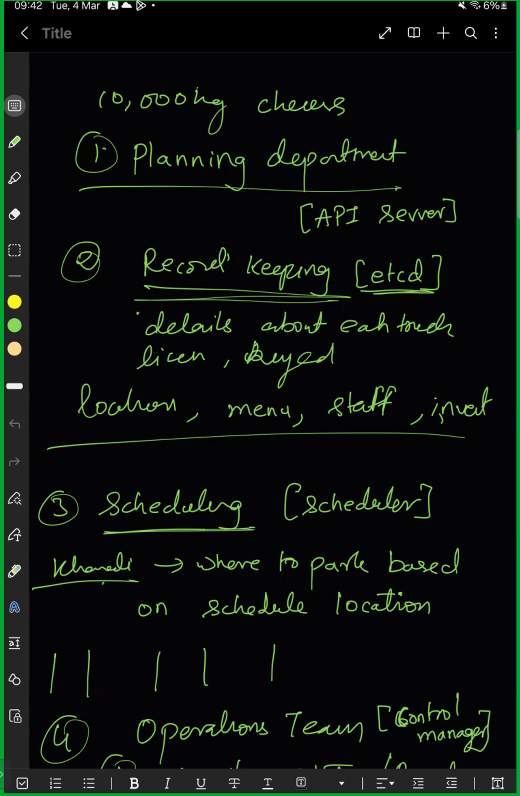 09:42 Tue, 4 Mar
6%
Title
10,000kg cheeus
① Planning department
[API Server]
② Record Keeping [etcd]
details about eah truck
licen,
location, menu, staff, invent
③ Scheduling [Scheduler]
→ where to park based
on schedule location
④ Operations Team [Control
manager]
B I U T T